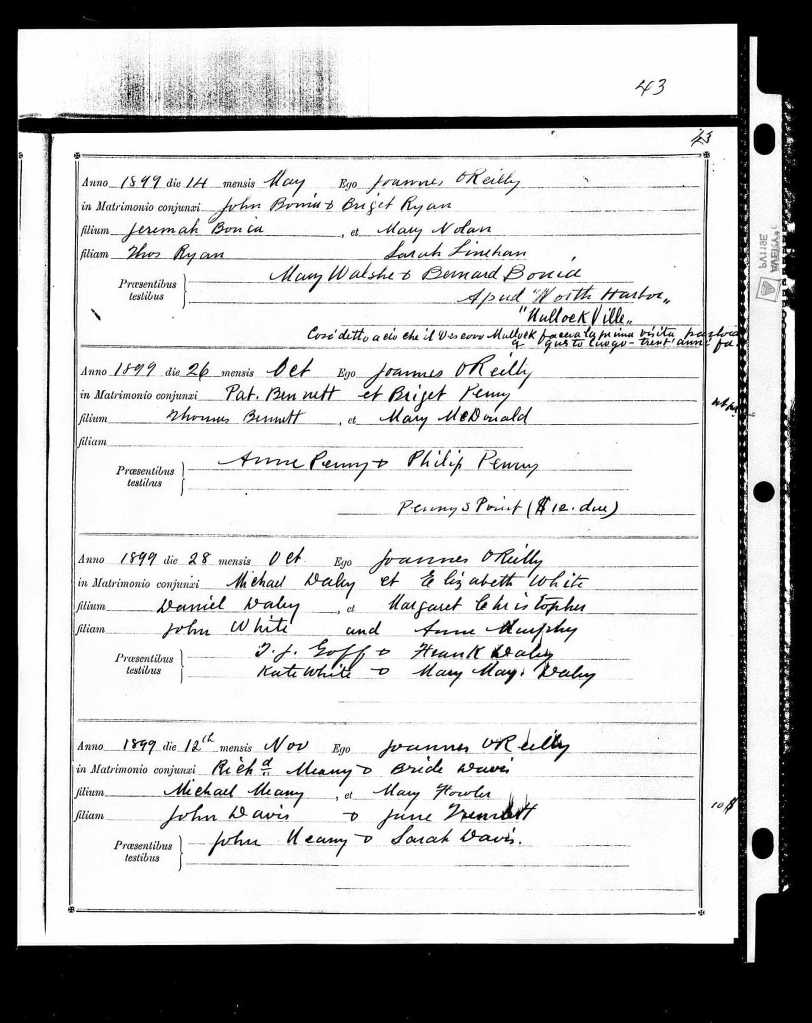 43
43
Anno 1899 die 14 mensis May Ego Joannes OReilly
in Matrimonio conjunxi John Bonia & Briget Ryan
filium Jeremah Bonia , et Mary Nolan
filiam Thos Ryan Sarah Linehan
Præsentibus testibus } Mary Walshe & Bernard Bonia
Apud "North Harbor"
"Mullock Ville"
Cosi ditto a cio che il Vescovo Mullock faceva la prima visita
questo luogo - trent' anni fa.
Anno 1899 die 26 mensis Oct Ego Joannes OReilly
in Matrimonio conjunxi Pat. Bennett et Briget Penny
filium Thomas Bennett , et Mary McDonald
filiam
Præsentibus testibus } Anne Penny & Philip Penny
Pennys Point ($12. due)
Anno 1899 die 28 mensis Oct Ego Joannes OReilly
in Matrimonio conjunxi Michael Daley et Elizabeth White
filium Daniel Daley , et Margaret Christopher
filiam John White and Anne Murphy
Præsentibus testibus } T. J. Goff & Frank Daley
Kate White & Mary Mag: Daley
Anno 1899 die 12th mensis Nov Ego Joannes OReilly
in Matrimonio conjunxi Richd Meany & Bride Davis
filium Michael Meany , et Mary Fowler
filiam John Davis & June
10$
Præsentibus testibus } John Meany & Sarah Davis.